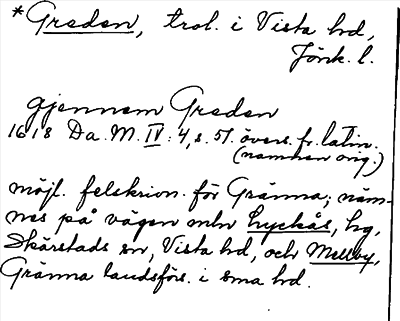 * Greden, trol. i Vista hd,
Jönk. l.
gjennem Greden
1618 Da. M. IV: 4, s. 51. övers. fr. latin.
(namnen orig.)
möjl. felskrivn. för Gränna; näm-
nes på vägen mln Lyckås, hg,
Skärstads sn, Vista hd, och Mellby,
Gränna landsförs. i sma hd.